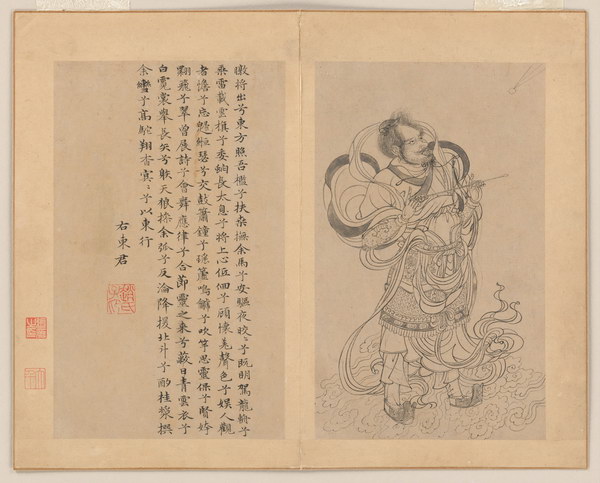 暾將出兮東方照吾檻兮扶桑撫余馬兮安驅夜皎〻兮既明駕龍輈兮
乘雷載雲旗兮委蛇長太息兮將上心低佪兮顧懷羌聲色兮娛人觀
者憺兮忘歸緪瑟兮交鼓簫鐘兮瑤簴鳴篪兮吹竽思靈保兮賢姱
翾飛兮翠曾展詩兮會舞應律兮合節靈之來兮蔽日青雲衣兮
白霓裳舉長矢兮䠶天狼操余弧兮反淪降援北斗兮酌桂漿撰
余轡兮高駝翔杳冥〻兮以東行
右東君